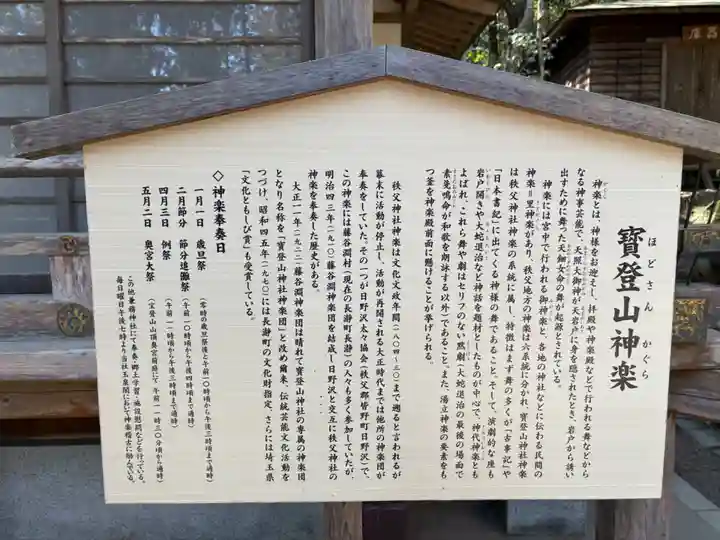 寶登山神楽
ほどさん かぐら
神楽とは、神様をお迎えし、拝殿や神楽殿などで行われる舞などから
なる神事芸能で、天照大御神が天岩戸に身を隠されたとき、岩戸から誘い
出すために舞った天鈿女命の舞が起源とされている。
神楽には宮中で行われる御神楽と、各地の神社などに伝わる民間の
神楽＝里神楽があり、秩父地方の神楽は六系統に分かれ、寶登山神社神楽
は秩父神社神楽の系統に属し、特徴はまず舞の多くが「古事記」や
「日本書紀」に出てくる神様の舞であること。そして、演劇的な座も
岩戸開きや大蛇退治など神話を題材としたものが中心で、神代神楽とも
よばれ、これら舞や劇はセリフのない黙劇（大蛇退治の最後の場面で
素戔嗚命が和歌を朗詠する以外）であること。また、湯立神楽の要素をも
つ釜を神楽殿前面に懸けることが挙げられる。
秩父神社神楽は文化文政年間（一八〇四～三〇）まで遡ると言われるが
幕末に活動が停止し、活動が再開される大正時代までは他所の神楽団が
奉奏をしていた。その一つが日野沢太々協会（秩父郡皆野町日野沢）で、
この神楽には藤谷淵村（現在の長瀞町長瀞）の人々も多く参加していたが、
明治四三年（一九一〇）藤谷淵神楽団を結成し日野沢と交互に秩父神社の
神楽を奉奏した歴史がある。
大正一一年（一九二二）藤谷淵神楽団は晴れて寶登山神社の専属の神楽団
となり名称を「寶登山神社神楽団」と改め爾来、伝統芸能文化活動を
つづけ、昭和四五年（一九七〇）には長瀞町の文化財指定、さらには埼玉県
「文化ともしび賞」も受賞している。
◇神楽奉奏日
一月一日 歳旦祭 （零時の歳旦祭後と午前一〇時頃から午後三時頃まで適時）
二月節分 節分追儺祭 （午前一〇時頃から午後四時頃まで適時）
四月三日 例祭 （午前一一時頃から午後三時頃まで適時）
五月二日 奥宮大祭 （宝登山山頂奥宮前庭にて 午前一一時三〇分頃から適時）
この他兼務神社にて奉奏・郷土学習・施設慰問なども行っている。
毎日曜日午後七時より当社玉泉閣において神楽稽古に励んでいる。